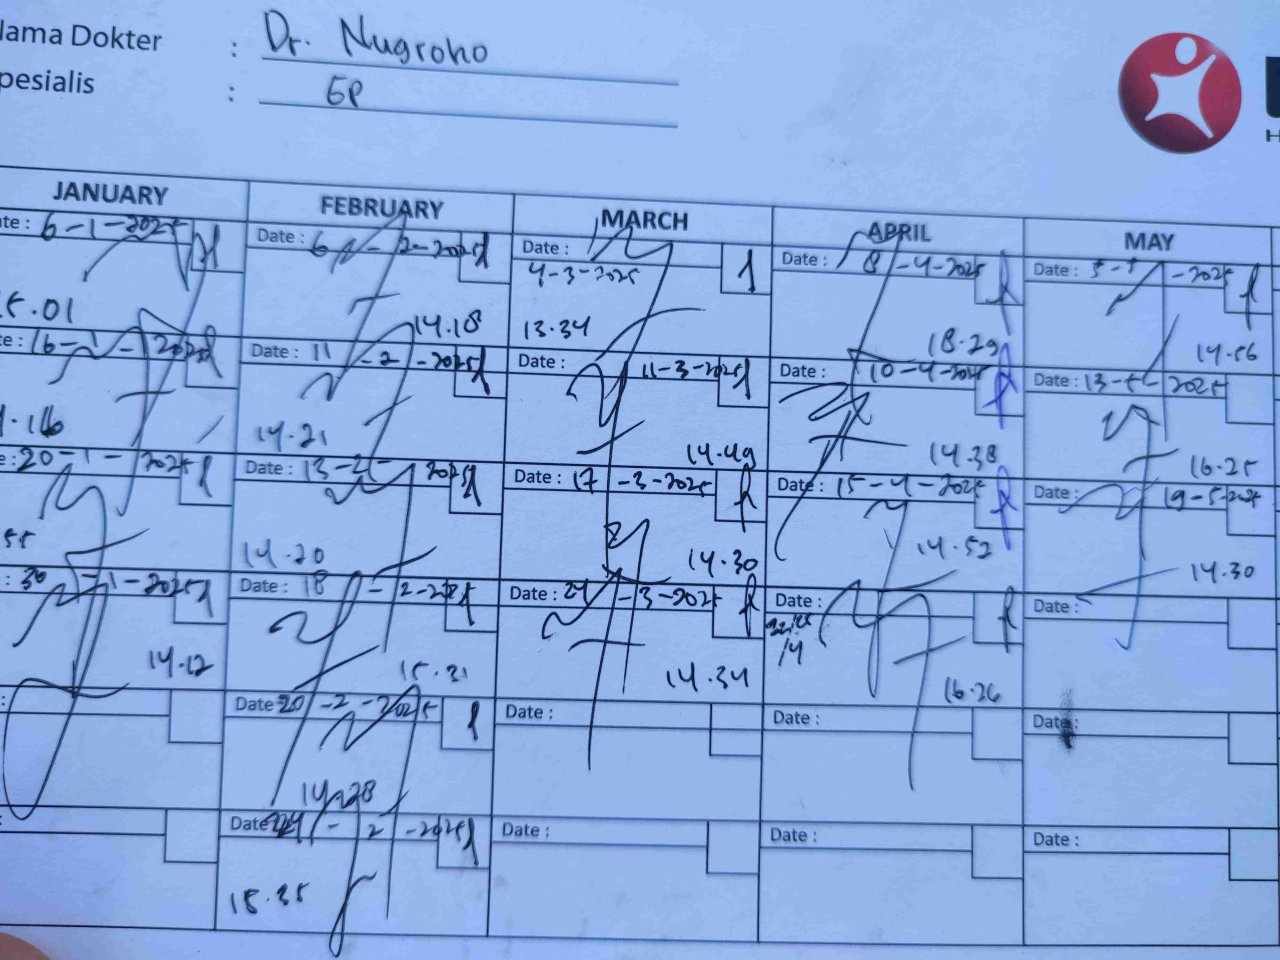 Nama Dokter : Dr. Nugroho
Spesialis : GP
JANUARY FEBRUARY MARCH APRIL MAY
Date : 6-1-2025
15.01
Date : 16-1-2025
Date : 20-1-2025
Date : 30-1-2025
14.12
Date : 6-2-2025
14.18
Date : 11-2-2025
14.21
Date : 13-2-2025
14.20
Date : 18-2-2025
15.21
Date : 20-2-2025
14.28
Date : 24-2-2025
15.35
Date : 4-3-2025
13.34
Date : 11-3-2025
14.49
Date : 17-3-2025
14.30
Date : 24-3-2025
14.34
Date :
Date :
Date : 8-4-2025
18.29
Date : 10-4-2025
14.38
Date : 15-4-2025
14.52
Date :
16.26
Date :
Date :
Date : 5-5-2025
14.56
Date : 13-5-2025
16.25
Date : 19-5-2025
14.30
Date :
Date :
Date :